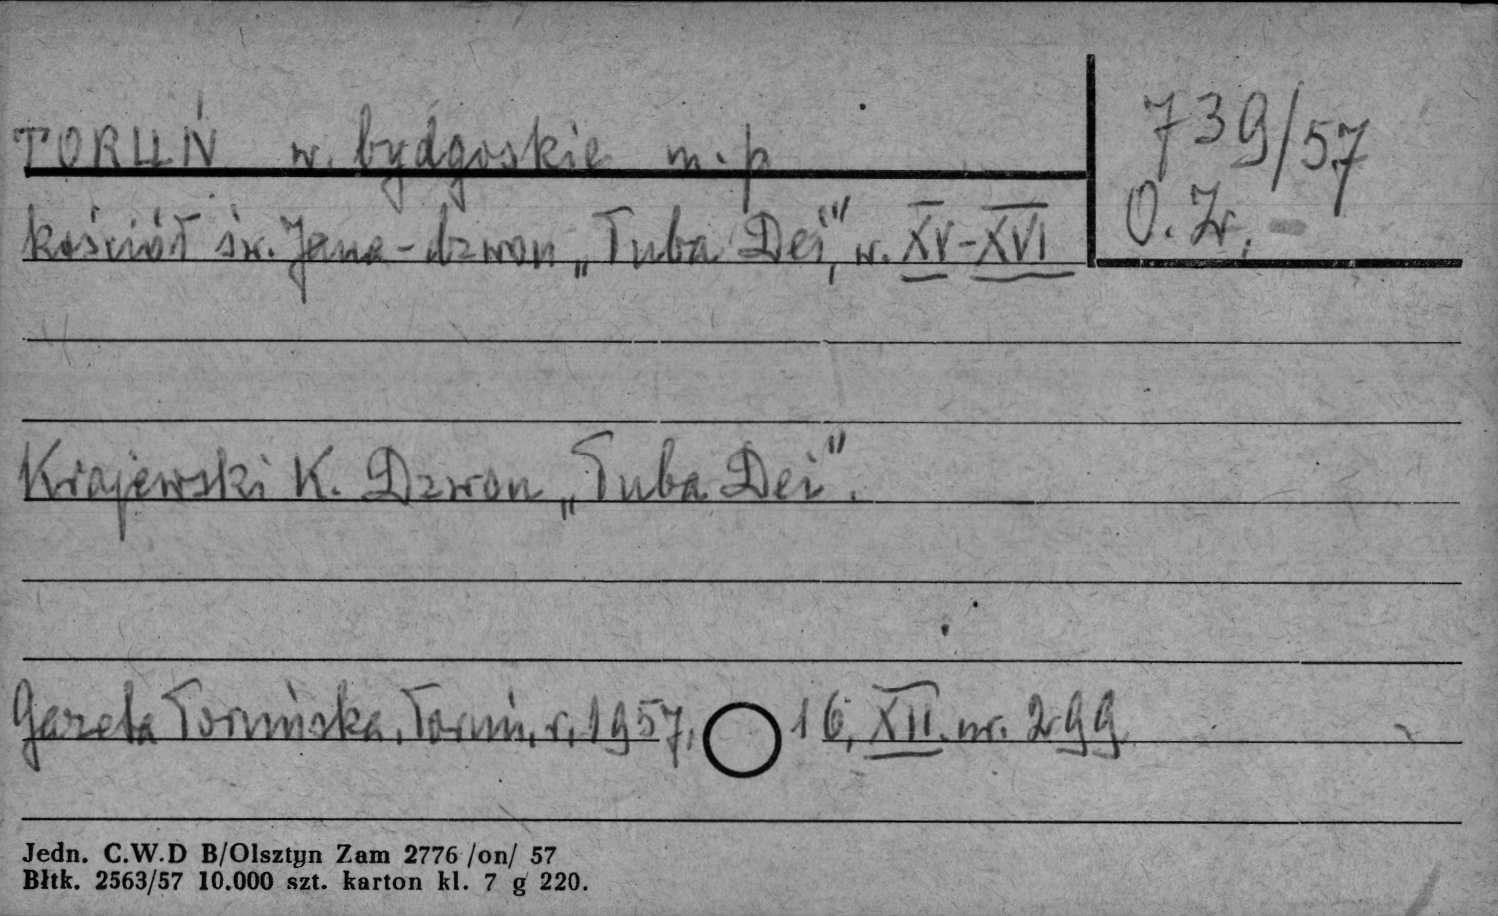 TORUŃ w. bydgoskie m. p
739/57
O. Zr. -
kościół św. Jana - dzwon „Tuba Dei", w. XV-XVI
Krajewski K. Dzwon „Tuba Dei".
Gazeta Toruńska, Toruń, r. 1957, 16, XII. nr. 299
Jedn. C.W.D B/Olsztyn Zam 2776 /on/ 57
Błtk. 2563/57 10.000 szt. karton kl. 7 g 220.